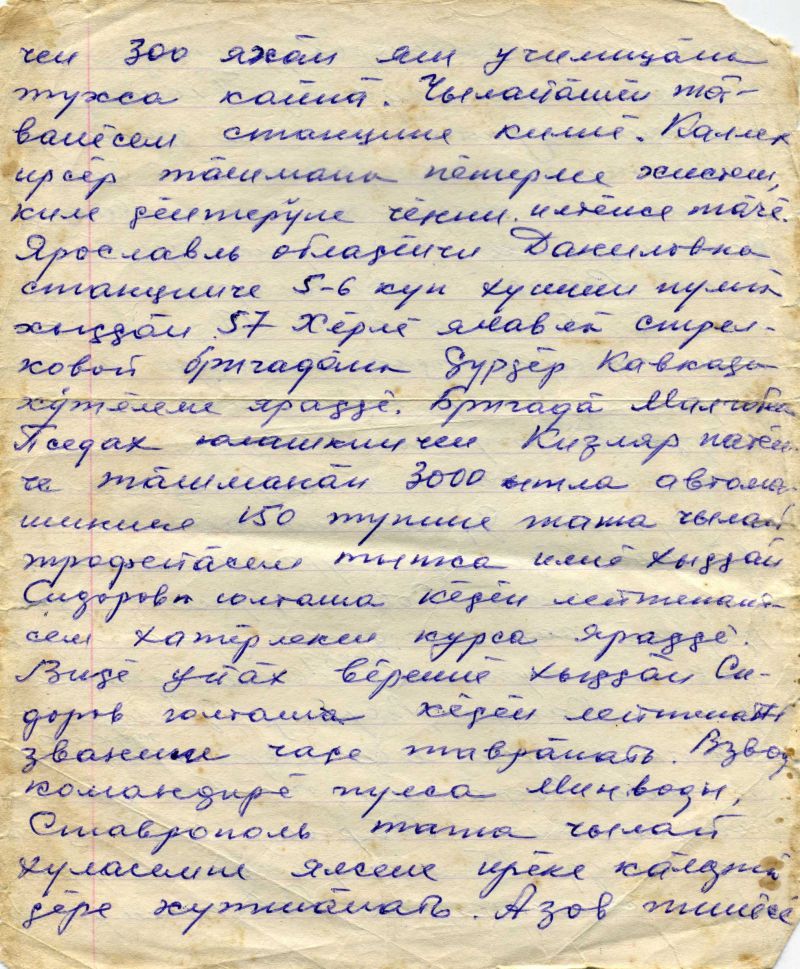 чен 300 яхӑн яш училищӑна
тухса кайнӑ. Чылайӑшӗн тӑ-
ванӗсем станцине килнӗ. Каллех
ирсӗр тӑшмана пӗтерме хистен,
килӗ ҫӗнтерӳпе чӗнни илтӗнсе тӑчӗ.
Ярославль облаҫӗнчи Даниловка
станцинче 5-6 кун хушши пулнӑ
хыҫҫӑн 57 Хӗрлӗ ялавлӑ стрел-
ковой бригадӑна Ҫурҫӗр Кавказа
хӳтӗлеме яраҫҫӗ. Бригадӑ Малгобек
Пседах юлашкинчен Кизляр патӗн-
че тӑшманӑн 3000 ытла автома-
шинине 150 тупине тата чылай
трофейӑсем тытса илнӗ хыҫҫӑн
Сидоров юлташа кӗҫӗн лейтенант-
сем хатӗрлекен курса яраҫҫӗ.
Виҫӗ уйӑх вӗреннӗ хыҫҫӑн Си-
доров юлташ кӗҫӗн лейтенант
званипе часе таврӑнать. Взвод
командирӗ пулса Минводы,
Ставрополь тата чылай
хуласемпе ялсене ирӗке кӑларнӑ
ҫӗре хутшӑнать. Азов тинӗсӗ